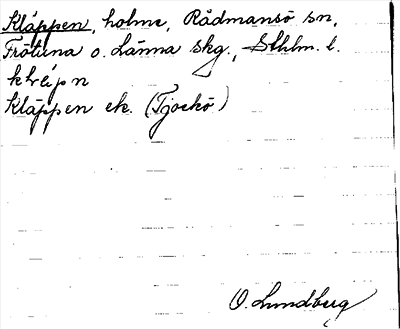 Kläppen, holme, Rådmansö sn,
Frötuna o. Länna skg., Sthlm. l.
Kläppen ek. (Tjockö)
O. Lundberg